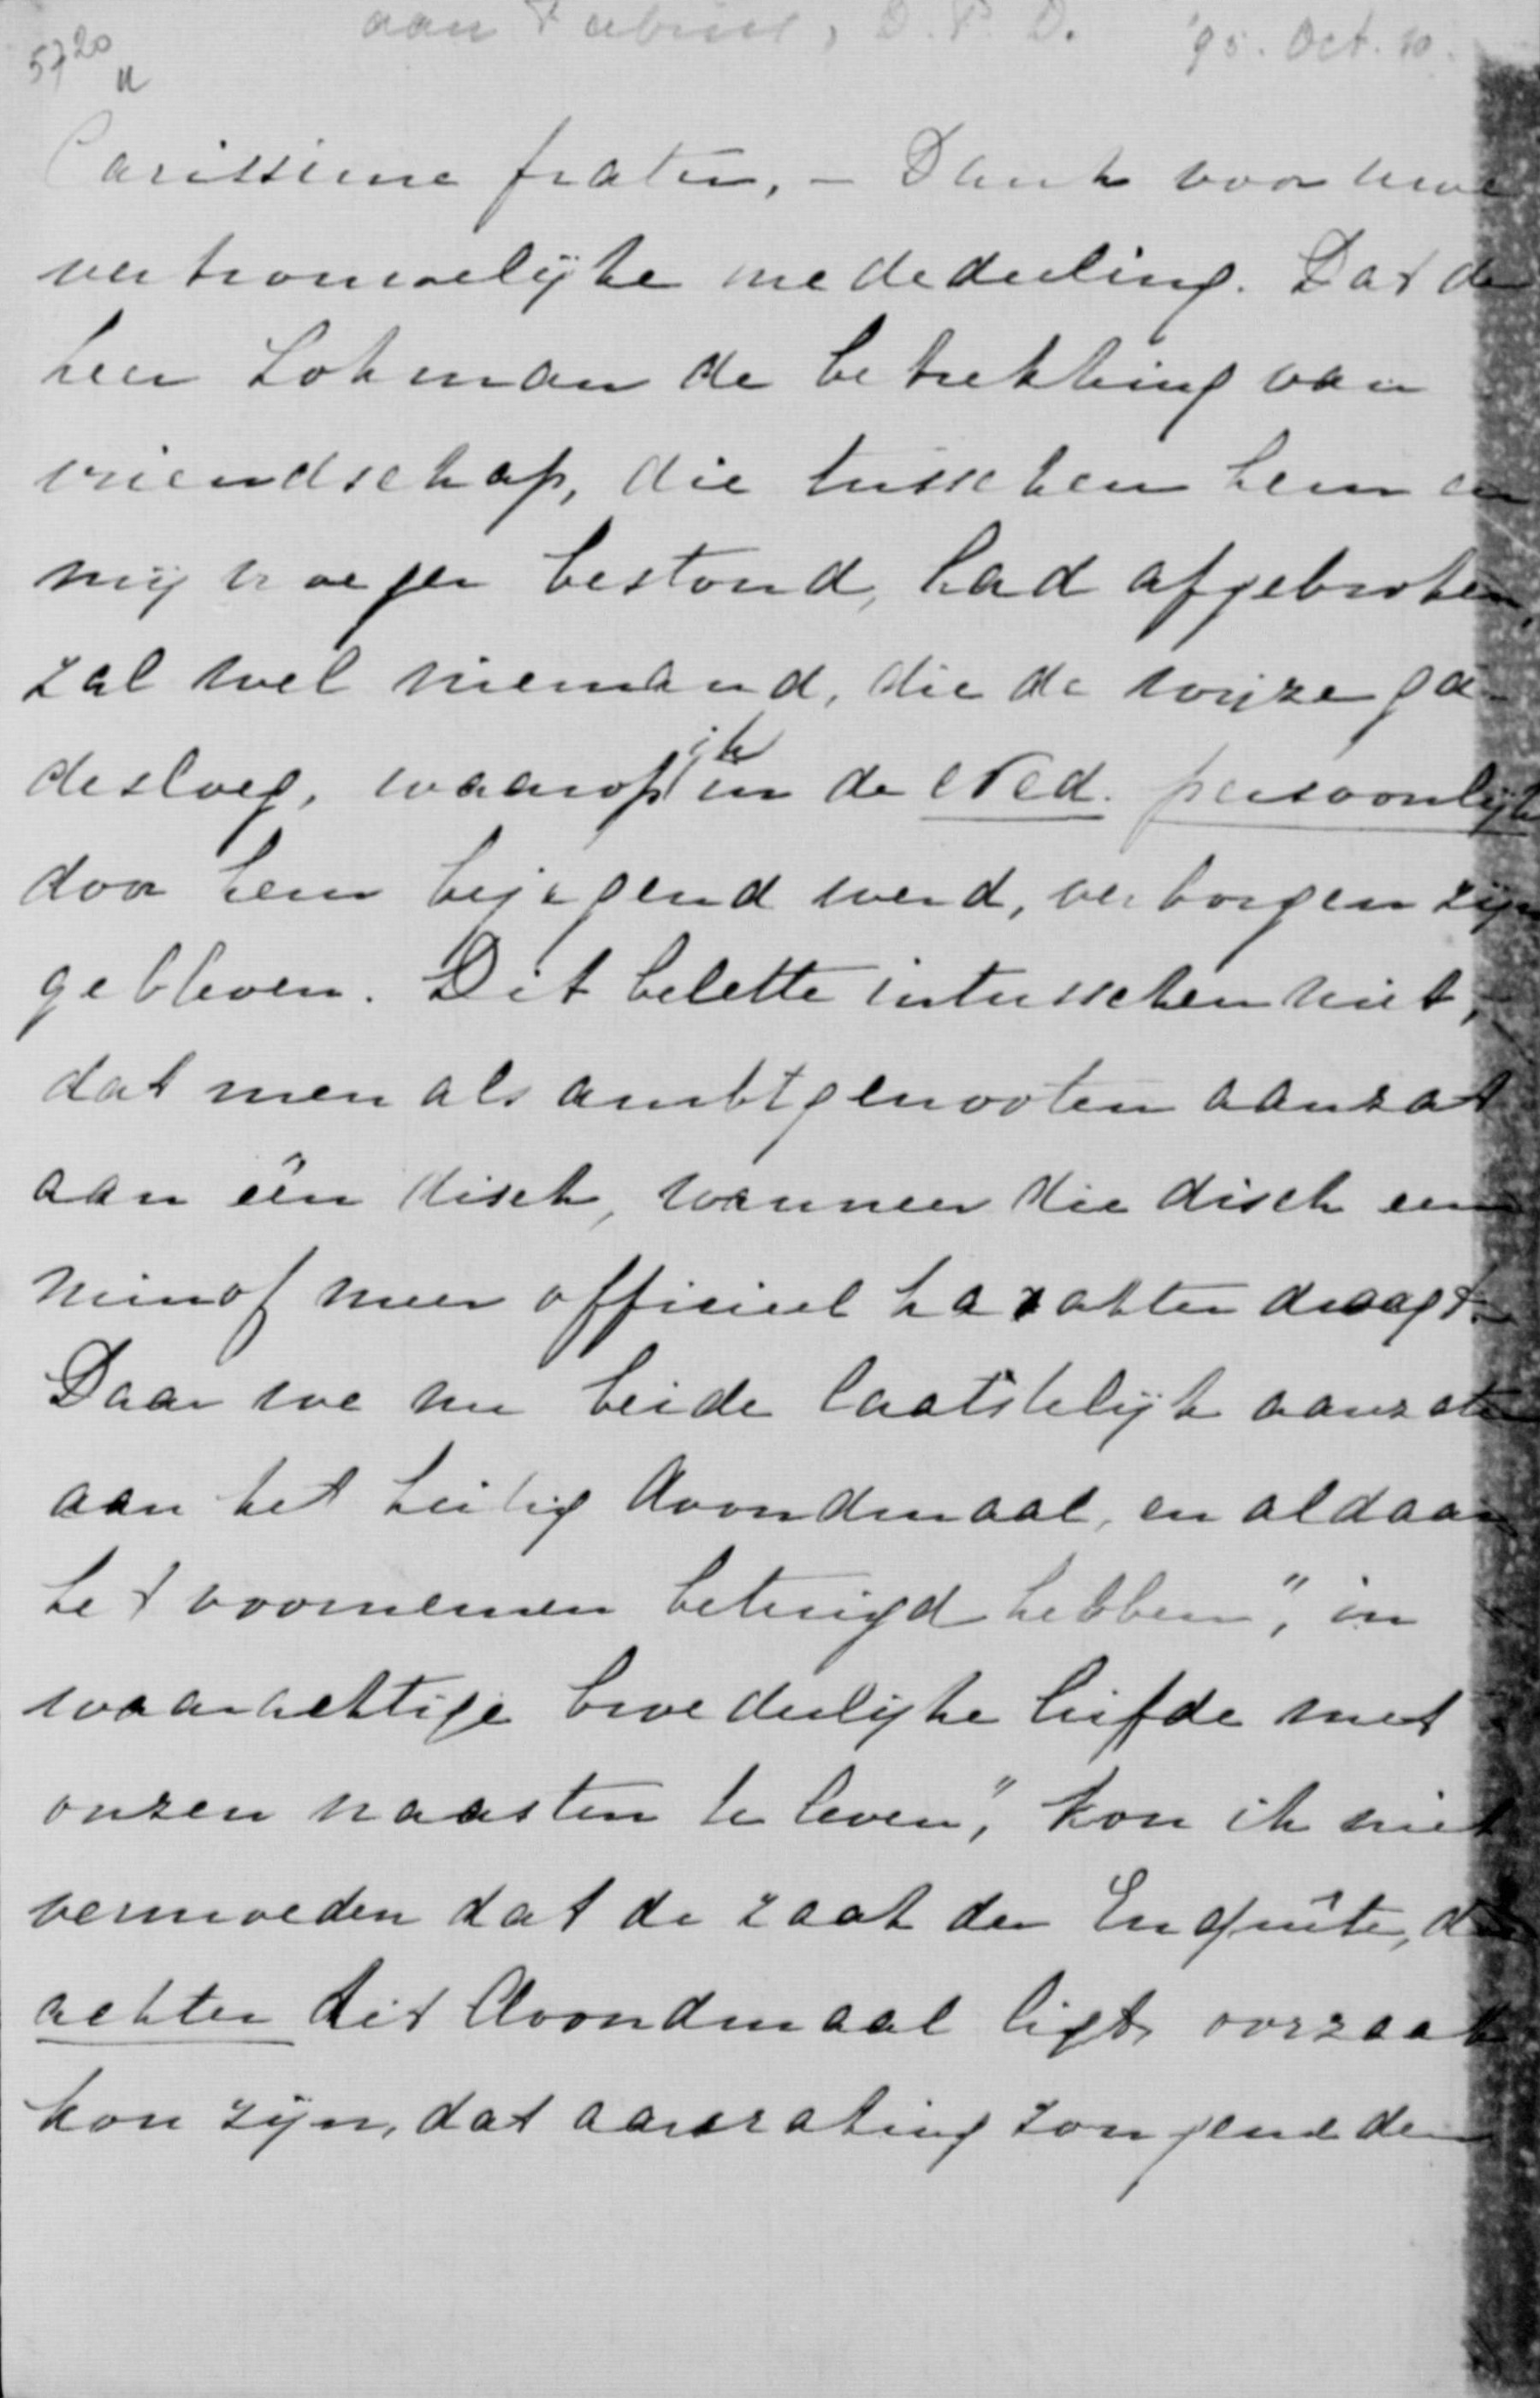 aan Fabius, D. P. D. '95. Oct. 10.
5720
Carissime frater, – Dank voor uwe
vertrouwelijke mededeeling. Dat de
heer Lohman de betrekking van
vriendschap, die tusschen hem en
mij vroeger bestond, had afgebroken,
zal wel niemand, die de wijze ga-
desloeg, waarop ik in de Ned. persoonlijk
door hem bejegend werd, verborgen zijn
gebleven. Dit belette intusschen niet,
dat men als ambtgenooten aanzat
aan één disch, wanneer die disch een
min of meer officieel karakter draagt.
Daar we nu beide laatstelijk aanzaten
aan het heilig Avondmaal, en aldaar
het voornemen betuigd hebben", in
waarachtige broederlijke liefde met
onzen naasten te leven", kon ik niet
vermoeden dat de zaak der Enquête, die
achter dit Avondmaal ligt oorzaak
kon zijn, dat aanzating zou